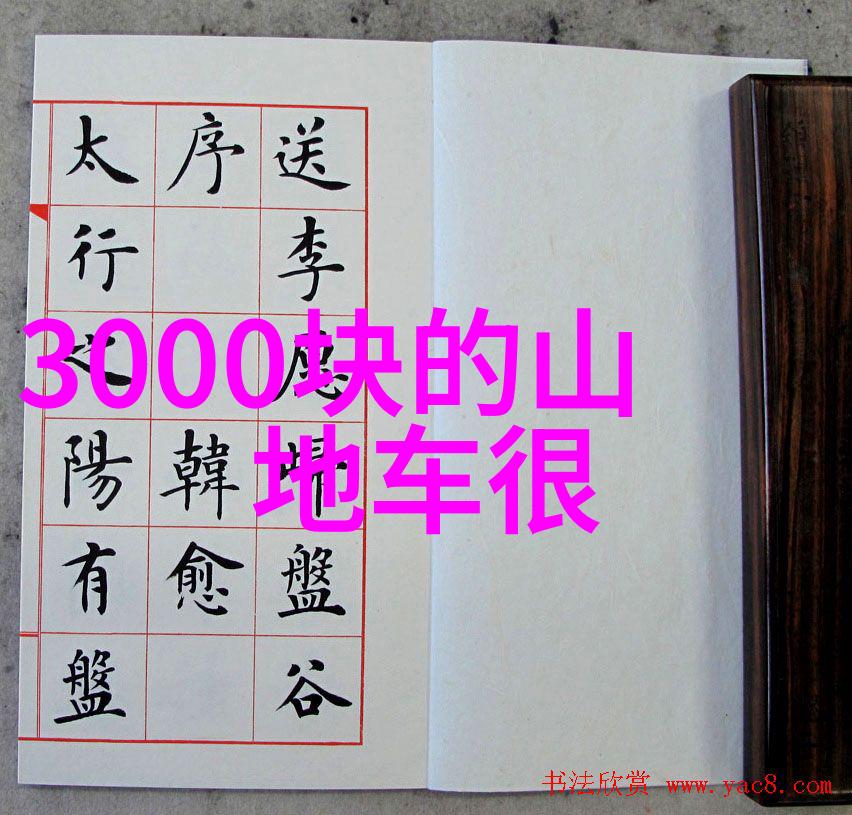 送李愿歸盤谷
序 韓愈
太行之陽有盤
3000块的山
地车很
书法欣赏 www.yac8.com